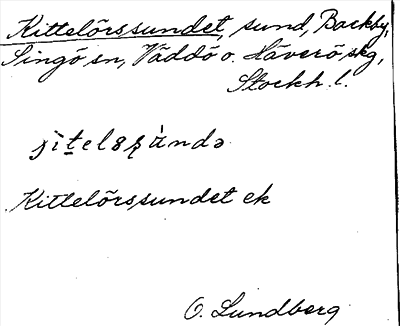 Kittelörssundet, sund, Backby,
Singö sn, Väddö o. Häverö skg,
Stockh. l.
Kittelörssundet ek
O. Lundberg